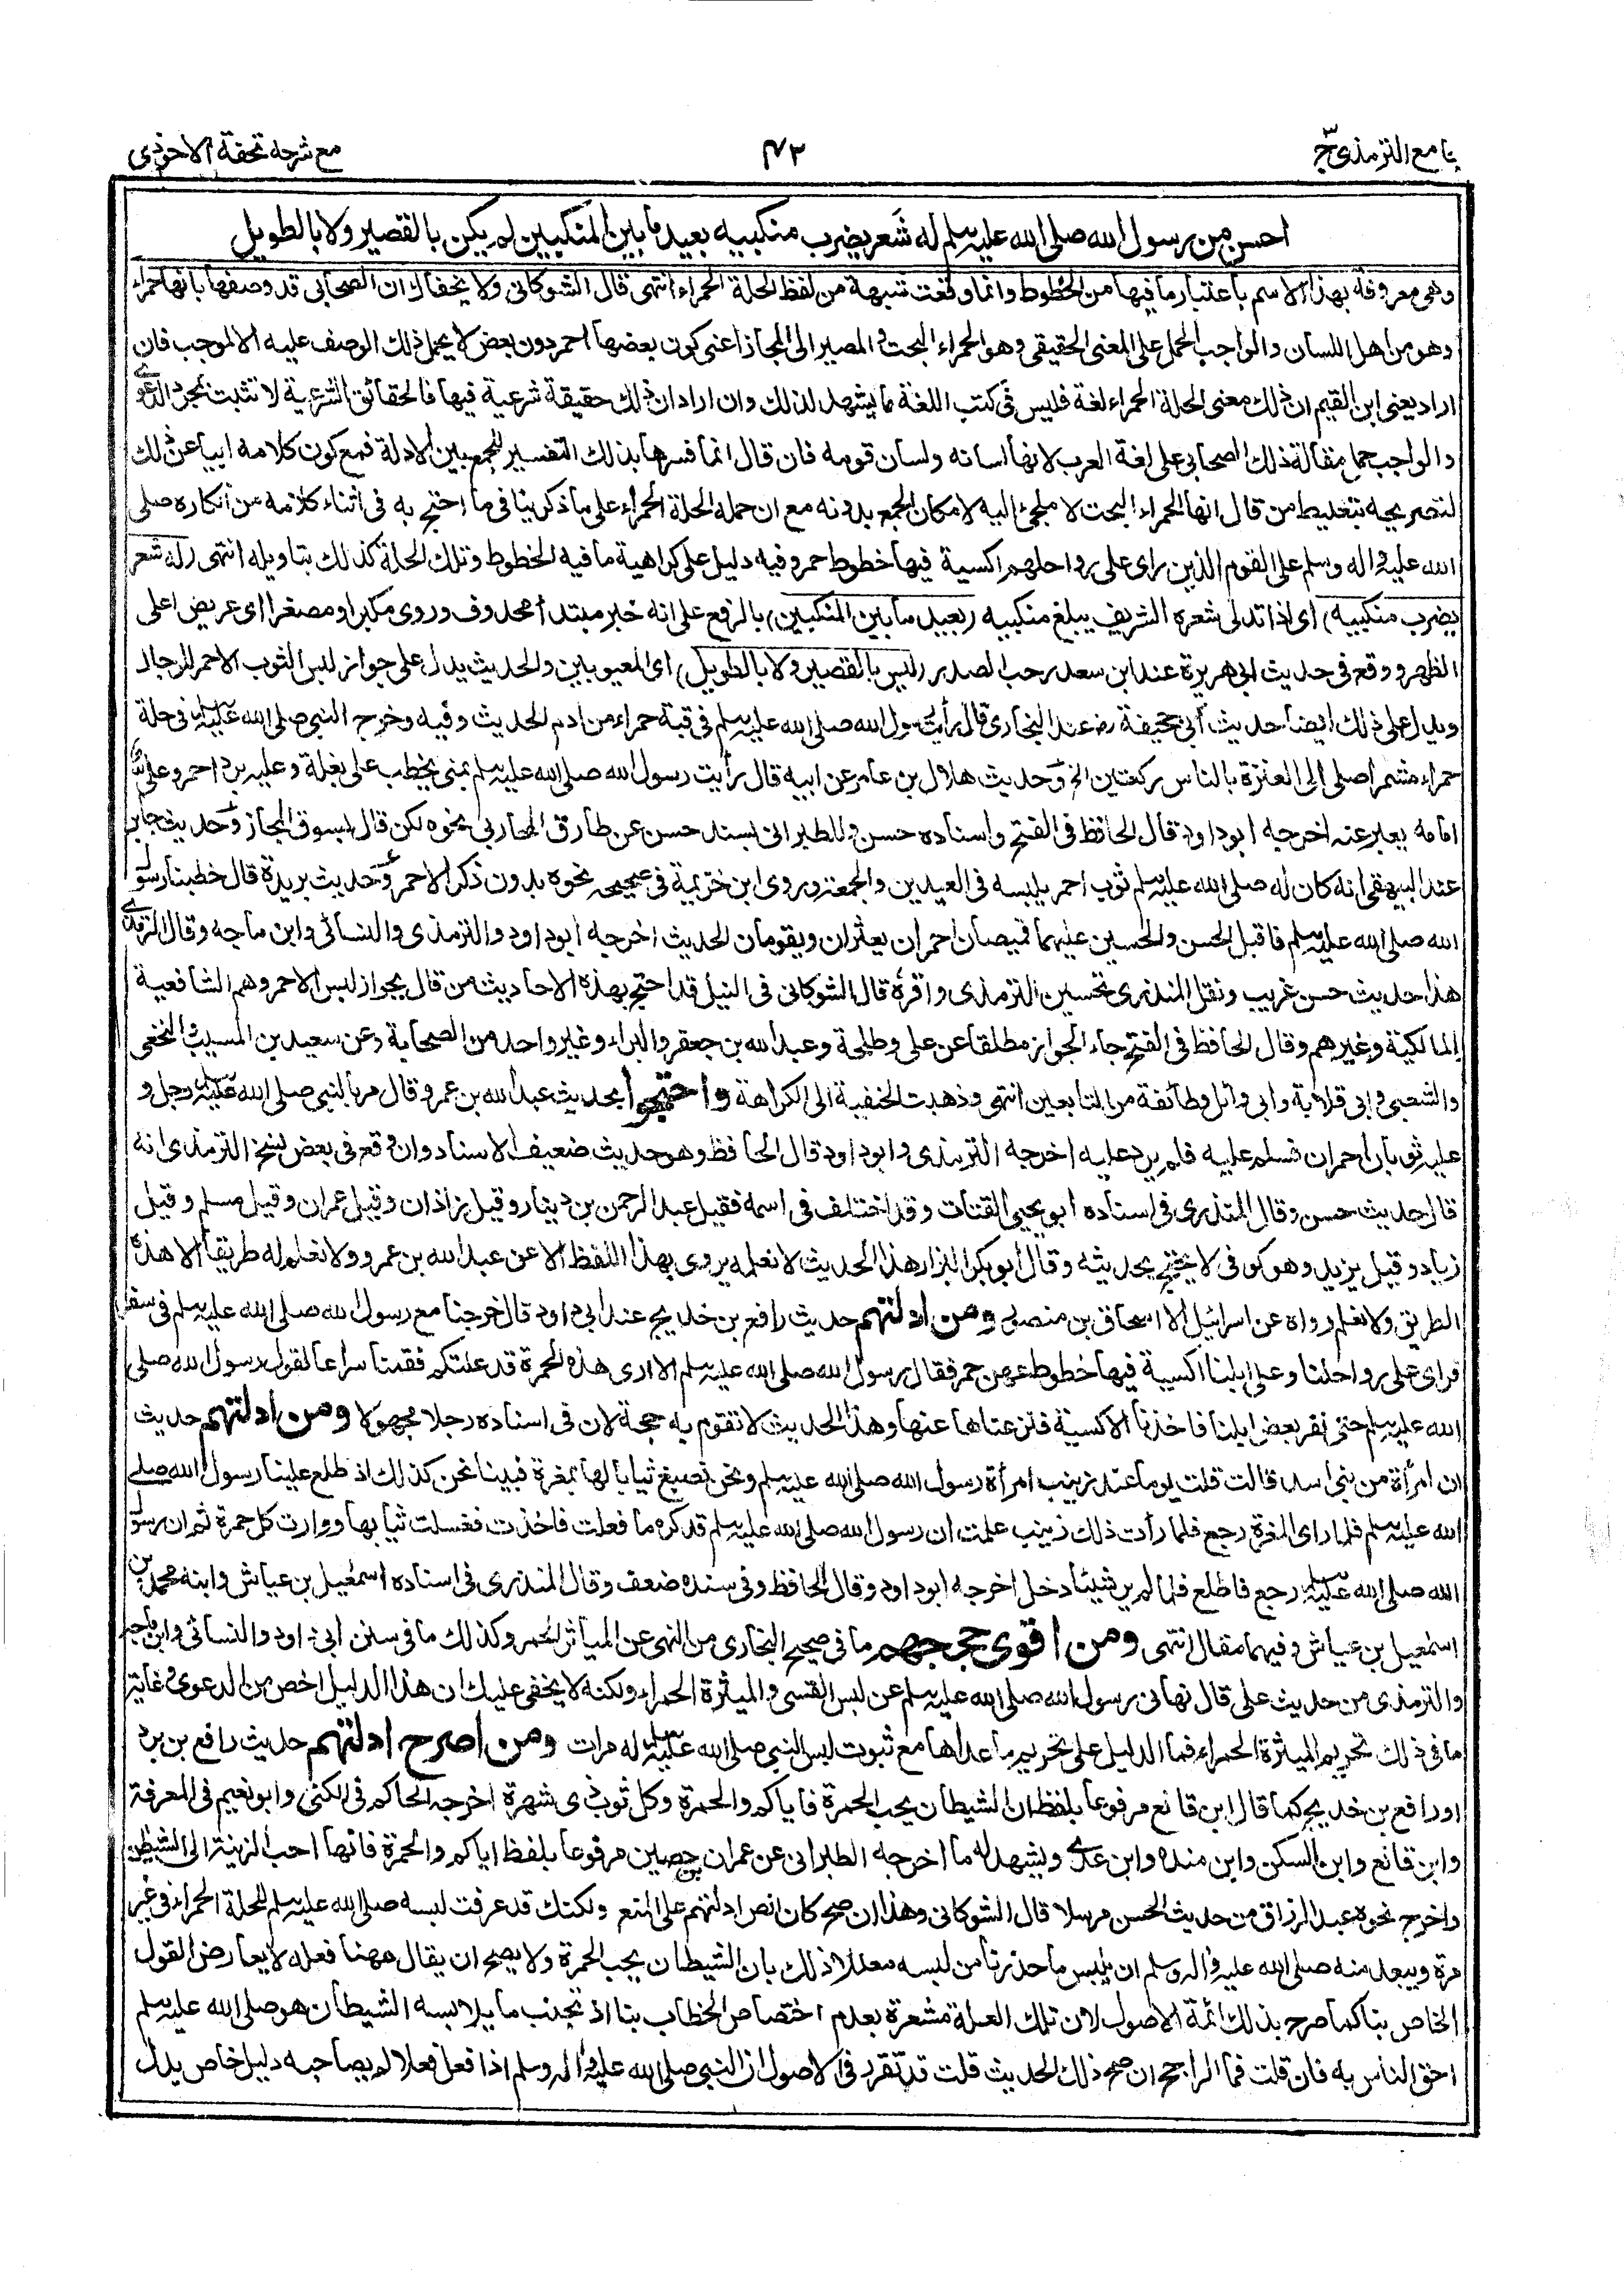 جامع الترمذی ج ٣
٤٢
مع شرحه تحفة الاحوذی
احسن من رسول الله صلى الله عليه وسلم له شَعر يضرب منكبيه بعيد ما بين المنكبين لم يكن بالقصير ولا بالطويل
وهى معروفة بهذا الاسم باعتبار ما فيها من الخطوط وانما وقعت شبهة من لفظ الحلة الحمراء انتهى قال الشوكانى ولا يخفاك ان الصحابى قد وصفها بانها حمراء
وهو من اهل اللسان والواجب الحمل على المعنى الحقيقى وهو الحمراء البحت والمصير الى المجاز اعنى كون بعضها احمر دون بعض لا يحمل ذلك الوصف عليه الا لموجب فان
اراد يعنى ابن القيم ان ذلك معنى الحلة الحمراء لغة فليس فى كتب اللغة ما يشهد لذلك وان اراد ان ذلك حقيقة شرعية فيها فالحقائق الشرعية لا تثبت بمجرد الدعوى
والواجب حمل مقالة ذلك الصحابى على لغة العرب لانها لسانه ولسان قومه فان قال انما فسرها بذلك التفسير للجمع بين الادلة فمع كون كلامه ابيا عن ذلك
لتصريحه بتغليط من قال انها الحمراء البحت لا ملجئ اليه لامكان الجمع بدونه مع ان حمله الحلة الحمراء على ما ذكر ينافى ما احتج به فى اثناء كلامه من انكاره صلى
الله عليه واله وسلم على القوم الذين راى على رواحلهم اكسية فيها خطوط حمر وفيه دليل على كراهية ما فيه الخطوط وتلك الحلة كذلك بتاويله انتهى (له شعر
يضرب منكبيه) اى اذا تدلى شعره الشريف يبلغ منكبيه (بعيد ما بين المنكبين) بالرفع على انه خبر مبتدأ محذوف وروى مكبرا ومصغرا اى عريض اعلى
الظهر ووقع فى حديث ابى هريرة عند ابن سعد رحب الصدر (ليس بالقصير ولا بالطويل) اى المعيوبين والحديث يدل على جواز لبس الثوب الاحمر للرجال
ويدل على ذلك ايضا حديث أبى جحيفة رض عند البخارى قال رأيت رسول الله صلى الله عليه وسلم فى قبة حمراء من ادم الحديث وفيه وخرج النبى صلى الله عليه وسلم فى حلة
حمراء مشمرا صلى الى العنزة بالناس ركعتين الخ وحديث هلال بن عامر عن ابيه قال رأيت رسول الله صلى الله عليه وسلم بمنى يخطب على بغلة وعليه برد احمر وعلى
امامه يعبر عنه اخرجه ابو داود قال الحافظ فى الفتح واسناده حسن وللطبرانى بسند حسن عن طارق المحاربى نحوه لكن قال بسوق المجاز وحديث جابر
عند البيهقى انه كان له صلى الله عليه وسلم ثوب احمر يلبسه فى العيدين والجمعة وروى ابن خزيمة فى صحيحه نحوه بدون ذكر الاحمر وحديث بريدة قال خطبنا رسول
الله صلى الله عليه وسلم فاقبل الحسن والحسين عليهما قميصان احمران يعثران ويقومان الحديث اخرجه ابو داود والترمذى والنسائى وابن ماجه وقال الترمذى
هذا حديث حسن غريب ونقل المنذرى تحسين الترمذى واقره قال الشوكانى فى النيل قد احتج بهذه الاحاديث من قال بجواز لبس الاحمر وهم الشافعية
المالكية وغيرهم وقال الحافظ فى الفتح جاء الجواز مطلقا عن على وطلحة وعبد الله بن جعفر والبراء وغير واحد من الصحابة وعن سعيد بن المسيب والنخعى
والشعبى وابى قلابة وابى وائل وطائفة من التابعين انتهى وذهبت الحنفية الى الكراهة واحتجوا بحديث عبد الله بن عمرو قال مر بالنبى صلى الله عليه وسلم رجل و
عليه ثوبان احمران فسلم عليه فلم يرد عليه اخرجه الترمذى وابو داود قال الحافظ وهو حديث ضعيف الاسناد وان وقع فى بعض نسخ الترمذى انه
قال حديث حسن وقال المنذرى فى اسناده ابو يحيى القتات وقد اختلف فى اسمه فقيل عبد الرحمن بن دينار وقيل زاذان وقيل عمران وقيل مسلم وقيل
زياد وقيل يزيد وهو كوفى لا يحتج بحديثه وقال أبو بكر البزار هذا الحديث لا نعلمه يروى بهذا اللفظ الا عن عبد الله بن عمرو ولا نعلم له طريقا الا هذه
الطريق ولا نعلم رواه عن اسرائيل الا اسحاق بن منصور ومن ادلتهم حديث رافع بن خديج عند ابى داود قال خرجنا مع رسول الله صلى الله عليه وسلم فى سفر
فراى على رواحلنا وعلى ابلنا اكسية فيها خطوط عهن حمر فقال رسول الله صلى الله عليه وسلم الا ارى هذه الحمرة قد علتكم فقمنا سراعا لقول رسول الله صلى
الله عليه وسلم حتى نفر بعض ابلنا فاخذنا الاكسية فنزعناها عنها وهذا الحديث لا تقوم به حجة لان فى اسناده رجلا مجهولا ومن ادلتهم حديث
ان امرأة من بنى اسد قالت قلت يوما عند زينب امرأة رسول الله صلى الله عليه وسلم ونحن نصبغ ثيابا لها بمغرة فبينا نحن كذلك اذ طلع علينا رسول الله صلى
الله عليه وسلم فلما راى المغرة رجع فلما رأت ذلك زينب علمت ان رسول الله صلى الله عليه وسلم قد كره ما فعلت فاخذت فغسلت ثيابها ووارت كل حمرة ثم ان رسول
الله صلى الله عليه وسلم رجع فاطلع فلما لم ير شيئا دخل اخرجه ابو داود وقال الحافظ وفى سنده ضعف وقال المنذرى فى اسناده اسمعيل بن عياش وابنه محمد بن
اسمعيل بن عياش وفيهما مقال انتهى ومن اقوى حججهم ما فى صحيح البخارى من النهى عن المياثر الحمر وكذلك ما فى سنن ابى داود والنسائى وابن ماجه
والترمذى من حديث على قال نهانى رسول الله صلى الله عليه وسلم عن لبس القسى والميثرة الحمراء ولكنه لا يخفى عليك ان هذا الدليل اخص من الدعوى وغاية
ما فى ذلك تحريم الميثرة الحمراء فما الدليل على تحريم ما عداها مع ثبوت لبس النبى صلى الله عليه وسلم له مرات ومن اصرح ادلتهم حديث رافع بن برد
او رافع بن خديج كما قال ابن قانع مرفوعا بلفظ ان الشيطان يحب الحمرة فاياكم والحمرة وكل ثوب ذى شهرة اخرجه الحاكم فى الكنى وابو نعيم فى المعرفة
وابن قانع وابن السكن وابن منده وابن عدى ويشهد له ما اخرجه الطبرانى عن عمران بن حصين مرفوعا بلفظ اياكم والحمرة فانها احب الزينة الى الشيطن
واخرج نحوه عبد الرزاق من حديث الحسن مرسلا قال الشوكانى وهذا ان صح كان انص ادلتهم على المنع ولكنك قد عرفت لبسه صلى الله عليه وسلم للحلة الحمراء فى غير
مرة ويبعد منه صلى الله عليه واله وسلم ان يلبس ما حذرنا من لبسه معللا ذلك بان الشيطان يحب الحمرة ولا يصح ان يقال ههنا فعله لا يعارض القول
الخاص بنا كما صرح بذلك ائمة الاصول لان تلك العلة مشعرة بعدم اختصاص الخطاب بنا اذ تجنب ما يلابسه الشيطان هو صلى الله عليه وسلم
احق الناس به فان قلت فما الراجح ان صح ذلك الحديث قلت قد تقرر فى الاصول ان النبى صلى الله عليه واله وسلم اذا فعل فعلا لم يصاحبه دليل خاص يدل